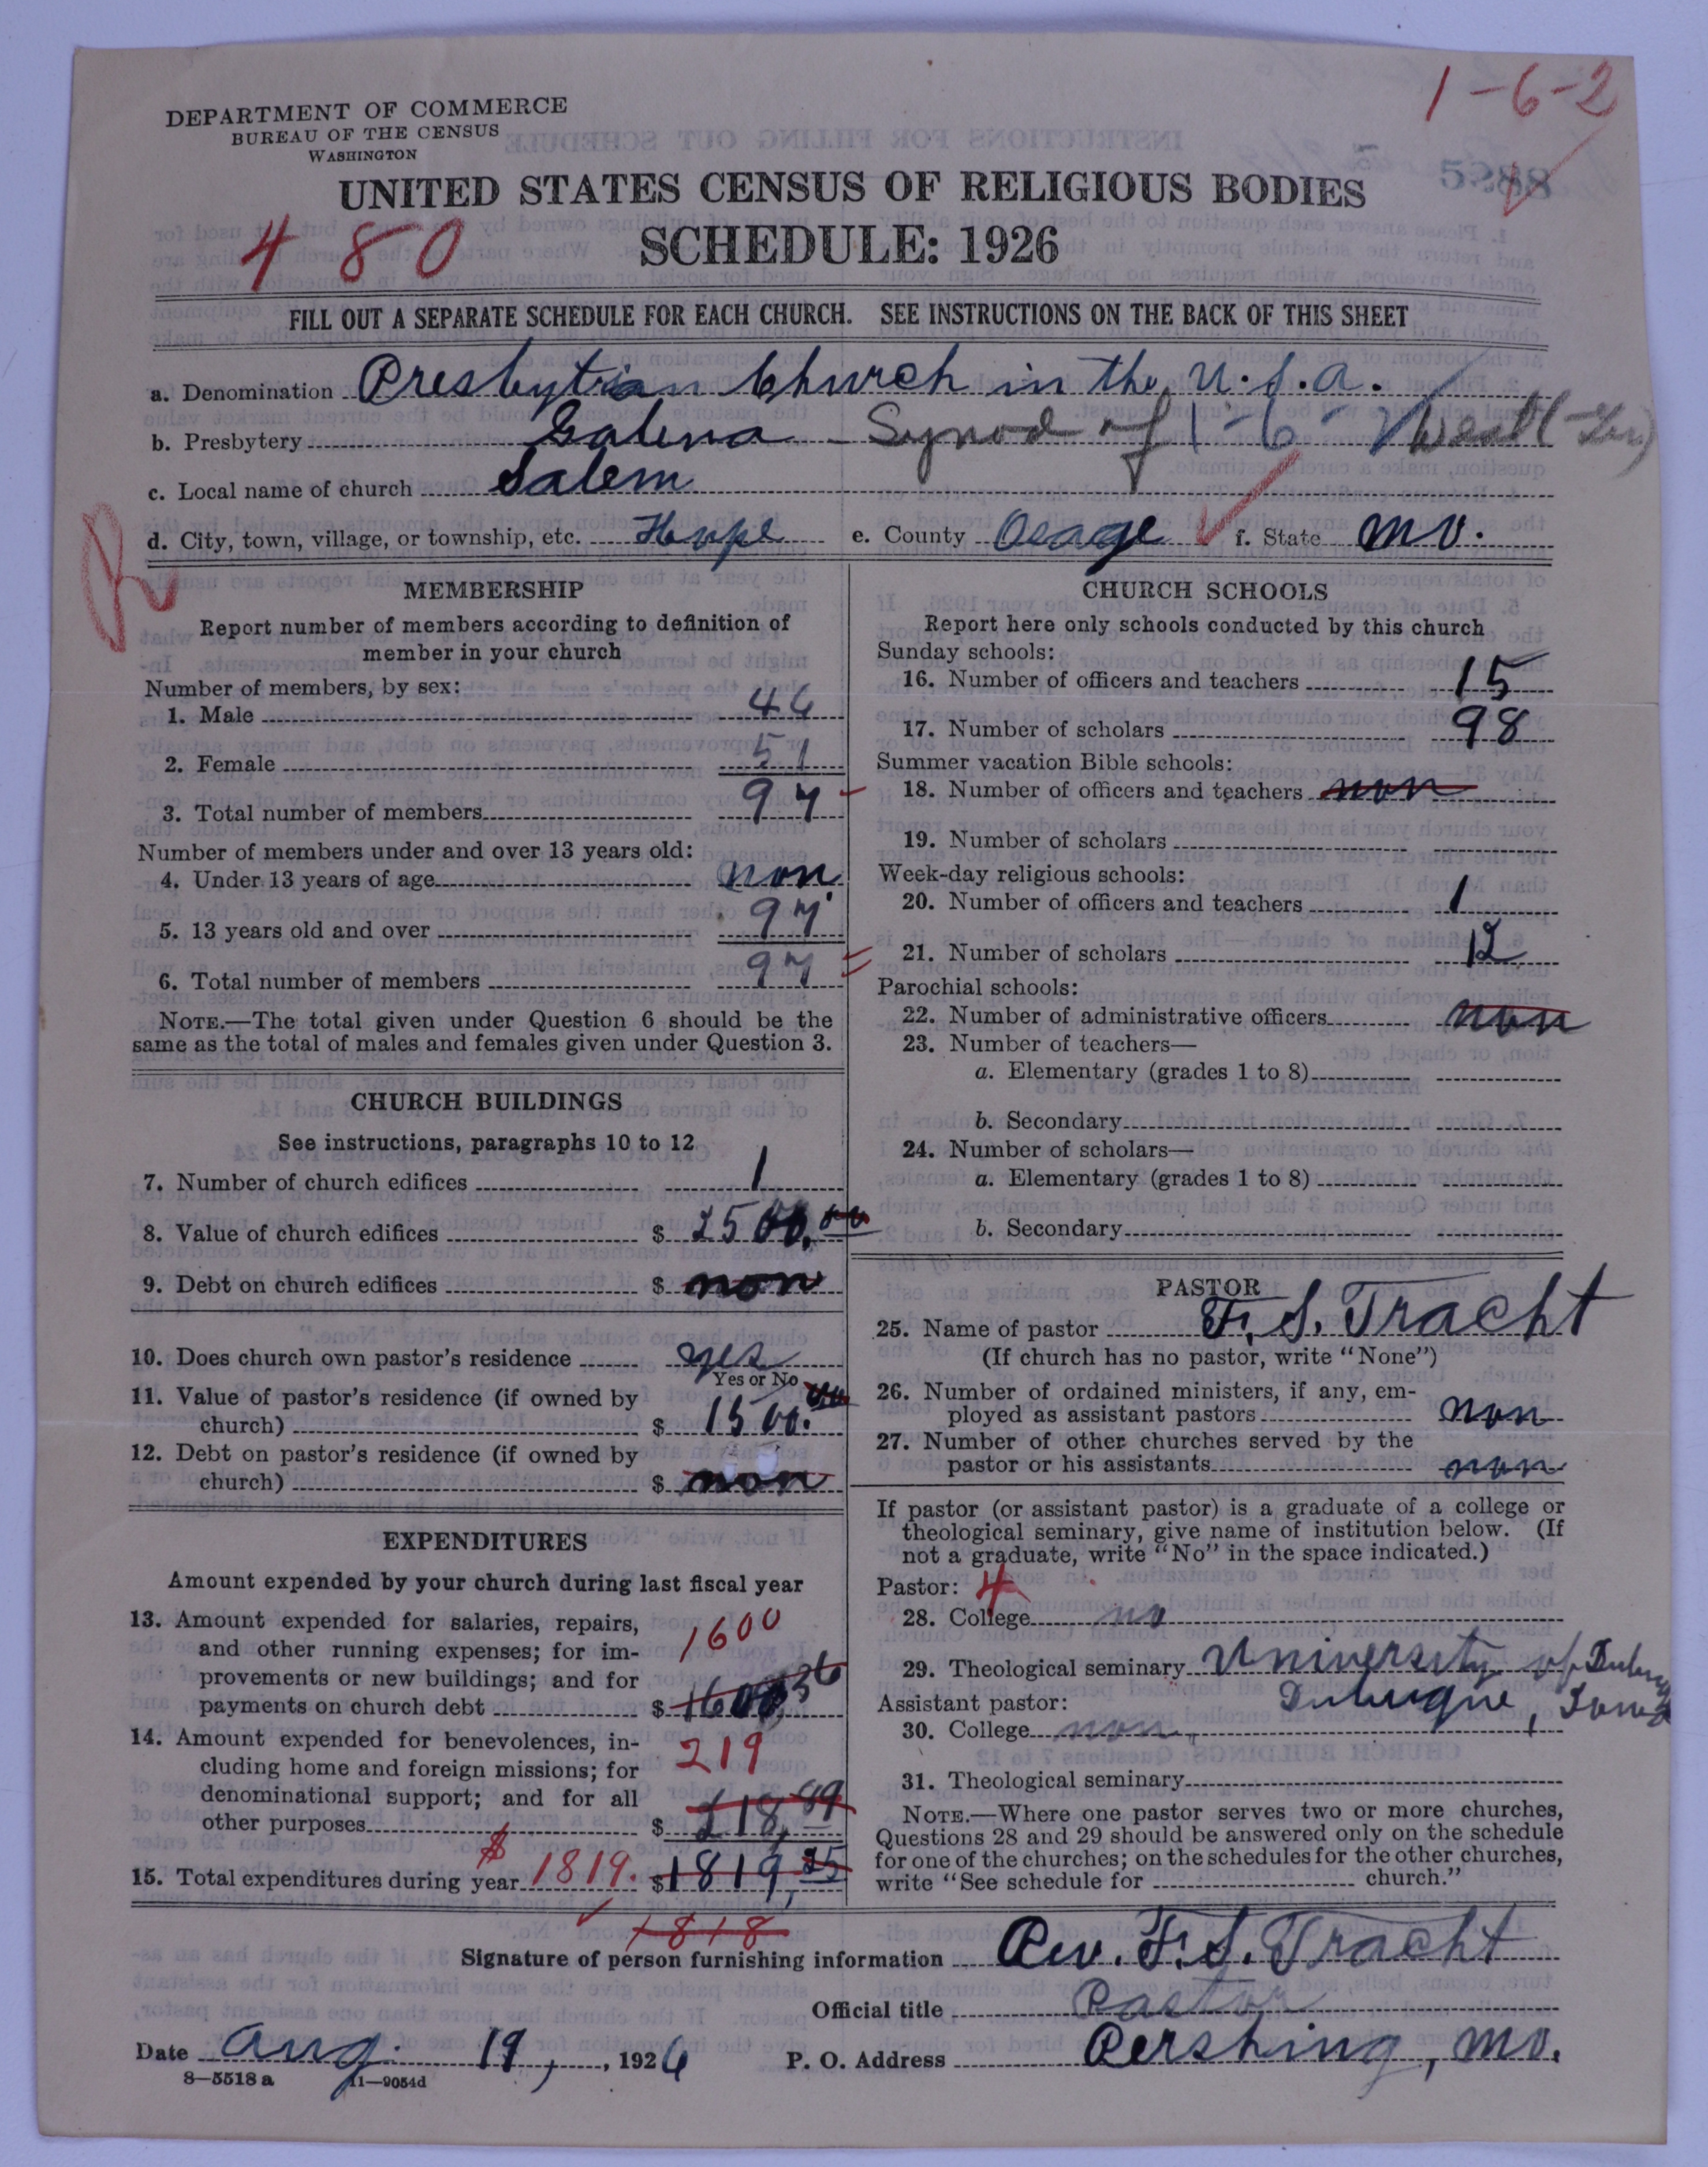 1-6-2
DEPARTMENT OF COMMERCE
BUREAU OF THE CENSUS
WASHINGTON
5988
UNITED STATES CENSUS OF RELIGIOUS BODIES
480
SCHEDULE: 1926
FILL OUT A SEPARATE SCHEDULE FOR EACH CHURCH. SEE INSTRUCTIONS ON THE BACK OF THIS SHEET
a. Denomination Presbytrian Church in the U.S.A.
b. Presbytery Galena - Synod of 1-6-2 West (Ger)
c. Local name of church Salem
d. City, town, village, or township, etc. Hope e. County Osage f. State Mo.
R
MEMBERSHIP
Report number of members according to definition of
member in your church
Number of members, by sex:
1. Male 46
2. Female 51
3. Total number of members 97
Number of members under and over 13 years old:
4. Under 13 years of age non
5. 13 years old and over 97
6. Total number of members 97
NOTE.—The total given under Question 6 should be the
same as the total of males and females given under Question 3.
CHURCH BUILDINGS
See instructions, paragraphs 10 to 12
7. Number of church edifices 1
8. Value of church edifices $ 2500.00
9. Debt on church edifices $ non
10. Does church own pastor's residence yes
Yes or No
11. Value of pastor's residence (if owned by
church) $ 1500.00
12. Debt on pastor's residence (if owned by
church) $ non
EXPENDITURES
Amount expended by your church during last fiscal year
13. Amount expended for salaries, repairs,
and other running expenses; for im-
provements or new buildings; and for
payments on church debt $ 1600.36
1600
14. Amount expended for benevolences, in-
cluding home and foreign missions; for
denominational support; and for all
other purposes $ 218,89
219
15. Total expenditures during year $ 1819. $ 1819,25
1818
CHURCH SCHOOLS
Report here only schools conducted by this church
Sunday schools:
16. Number of officers and teachers 15
17. Number of scholars 98
Summer vacation Bible schools:
18. Number of officers and teachers non
19. Number of scholars
Week-day religious schools:
20. Number of officers and teachers 1
21. Number of scholars 12
Parochial schools:
22. Number of administrative officers non
23. Number of teachers—
a. Elementary (grades 1 to 8)
b. Secondary
24. Number of scholars—
a. Elementary (grades 1 to 8)
b. Secondary
PASTOR
25. Name of pastor F. S. Tracht
(If church has no pastor, write "None")
26. Number of ordained ministers, if any, em-
ployed as assistant pastors non
27. Number of other churches served by the
pastor or his assistants non
If pastor (or assistant pastor) is a graduate of a college or
theological seminary, give name of institution below. (If
not a graduate, write "No" in the space indicated.)
Pastor: 4
28. College no
29. Theological seminary University of Dubuq
Assistant pastor: Dubuque, Iowa
30. College non
31. Theological seminary
NOTE.—Where one pastor serves two or more churches,
Questions 28 and 29 should be answered only on the schedule
for one of the churches; on the schedules for the other churches,
write "See schedule for church."
Signature of person furnishing information Rev. F. S. Tracht
Official title Pastor
Date Aug. 19, , 1926 P. O. Address Pershing, Mo.
8—5518 a 11—9054d